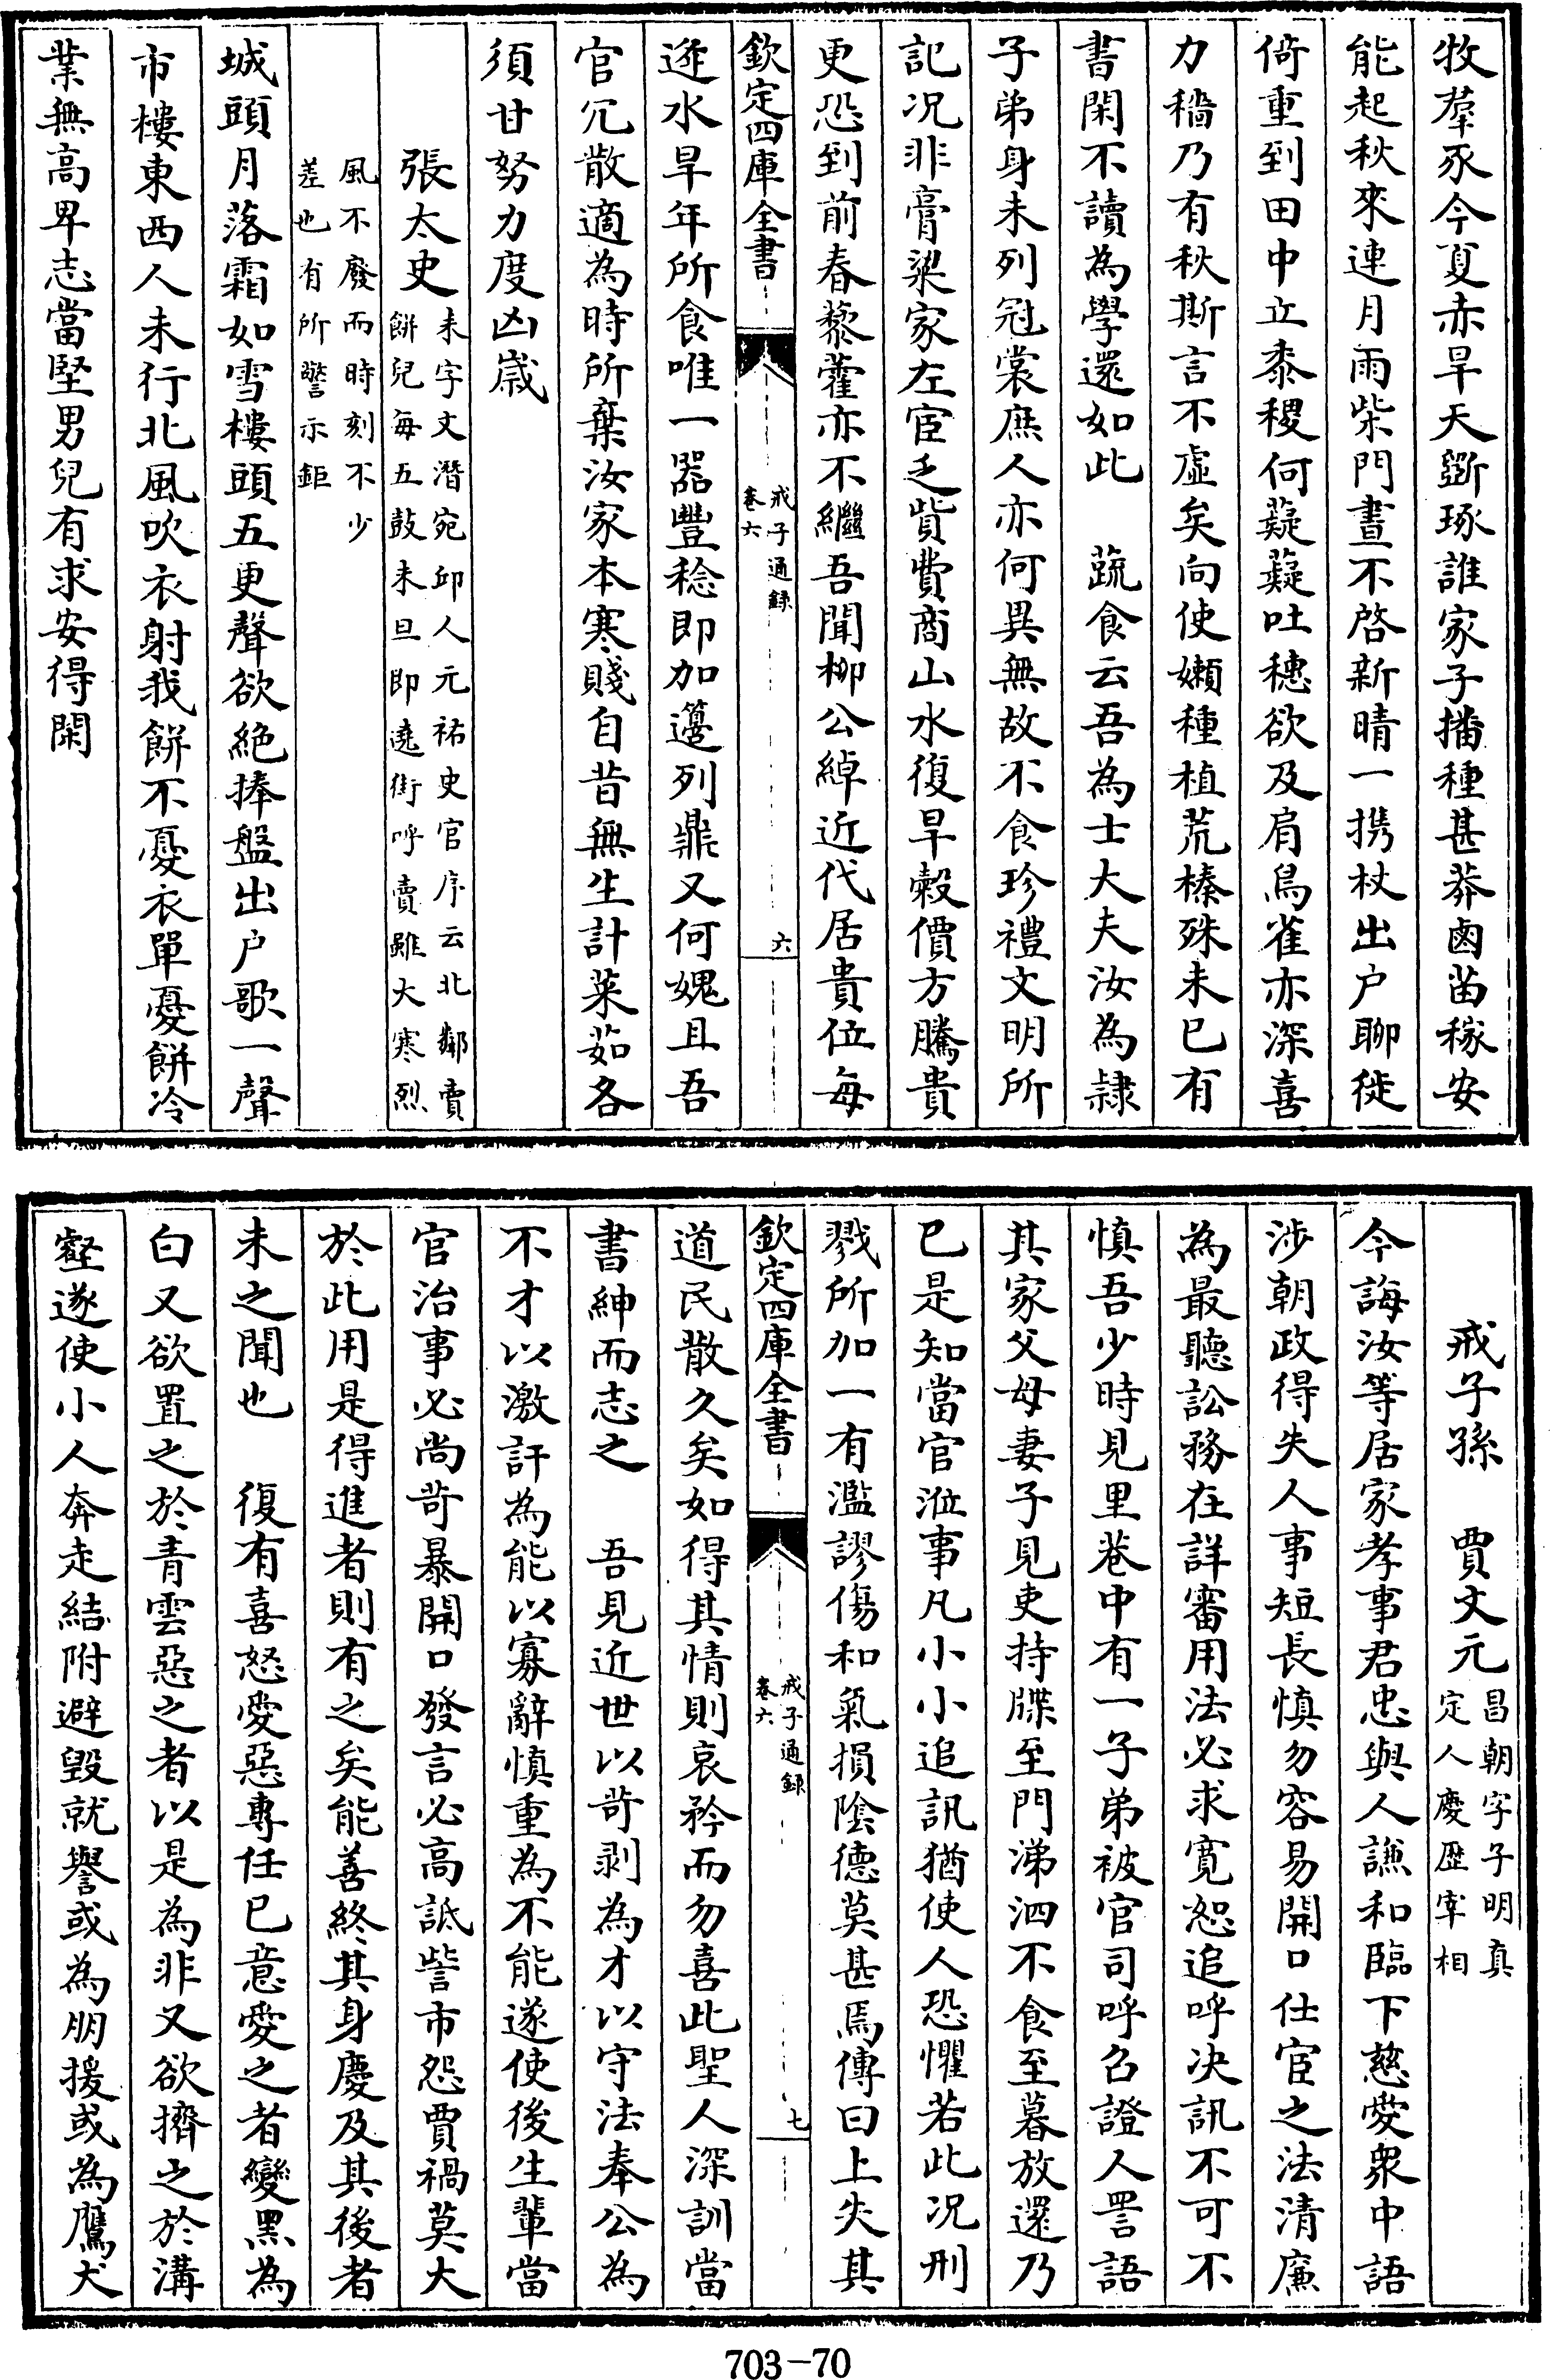 牧羣豕今夏赤旱天斵琢誰家子播種甚莽鹵苗稼安
能起秋來連月雨柴門晝不啓新晴一携杖出户聊徙
倚重到田中立黍稷何薿薿吐穗欲及肩鳥雀亦深喜
力穡乃有秋斯言不虛矣向使嬾種植荒榛殊未已有
書閑不讀為學還如此　蔬食云吾為士大夫汝為隷
子弟身未列冠裳庶人亦何異無故不食珍禮文明所
記况非膏粱家左宦乏貲費商山水復旱穀價方騰貴
更恐到前春藜藿亦不繼吾聞柳公綽近代居貴位每
欽定四庫全書
戒子通録
卷六
六
逰水旱年所食唯一器豐稔即加籩列鼎又何媿且吾
官冗散適為時所棄汝家本寒賤自昔無生計菜茹各
須甘努力度凶嵗
張太史
耒字文潛宛邱人元祐史官序云北鄰賣
餅兒每五鼓未旦即遶街呼賣雖大寒烈
風不廢而時刻不少
差也有所警示鉅
城頭月落霜如雪樓頭五更聲欲絶捧盤出户歌一聲
市樓東西人未行北風吹衣射我餅不憂衣單憂餅冷
業無高卑志當堅男兒有求安得閑
戒子孫　賈文元
昌朝字子明真
定人慶歴宰相
今誨汝等居家孝事君忠與人謙和臨下慈愛衆中語
涉朝政得失人事短長慎勿容易開口仕宦之法清廉
為最聽訟務在詳審用法必求寛恕追呼决訊不可不
慎吾少時見里巷中有一子弟被官司呼召證人詈語
其家父母妻子見吏持牒至門涕泗不食至暮放還乃
已是知當官涖事凡小小追訊猶使人恐懼若此况刑
戮所加一有濫謬傷和氣損陰德莫甚焉傳曰上失其
欽定四庫全書
戒子通録
卷六
七
道民散久矣如得其情則哀矜而勿喜此聖人深訓當
書紳而志之　吾見近世以苛剥為才以守法奉公為
不才以激訐為能以寡辭慎重為不能遂使後生輩當
官治事必尚苛暴開口發言必高詆訾市怨賈禍莫大
於此用是得進者則有之矣能善終其身慶及其後者
未之聞也　復有喜怒愛惡專任已意愛之者變黑為
白又欲置之於青雲惡之者以是為非又欲擠之於溝
壑遂使小人奔走結附避毀就譽或為朋援或為鷹犬
703-70